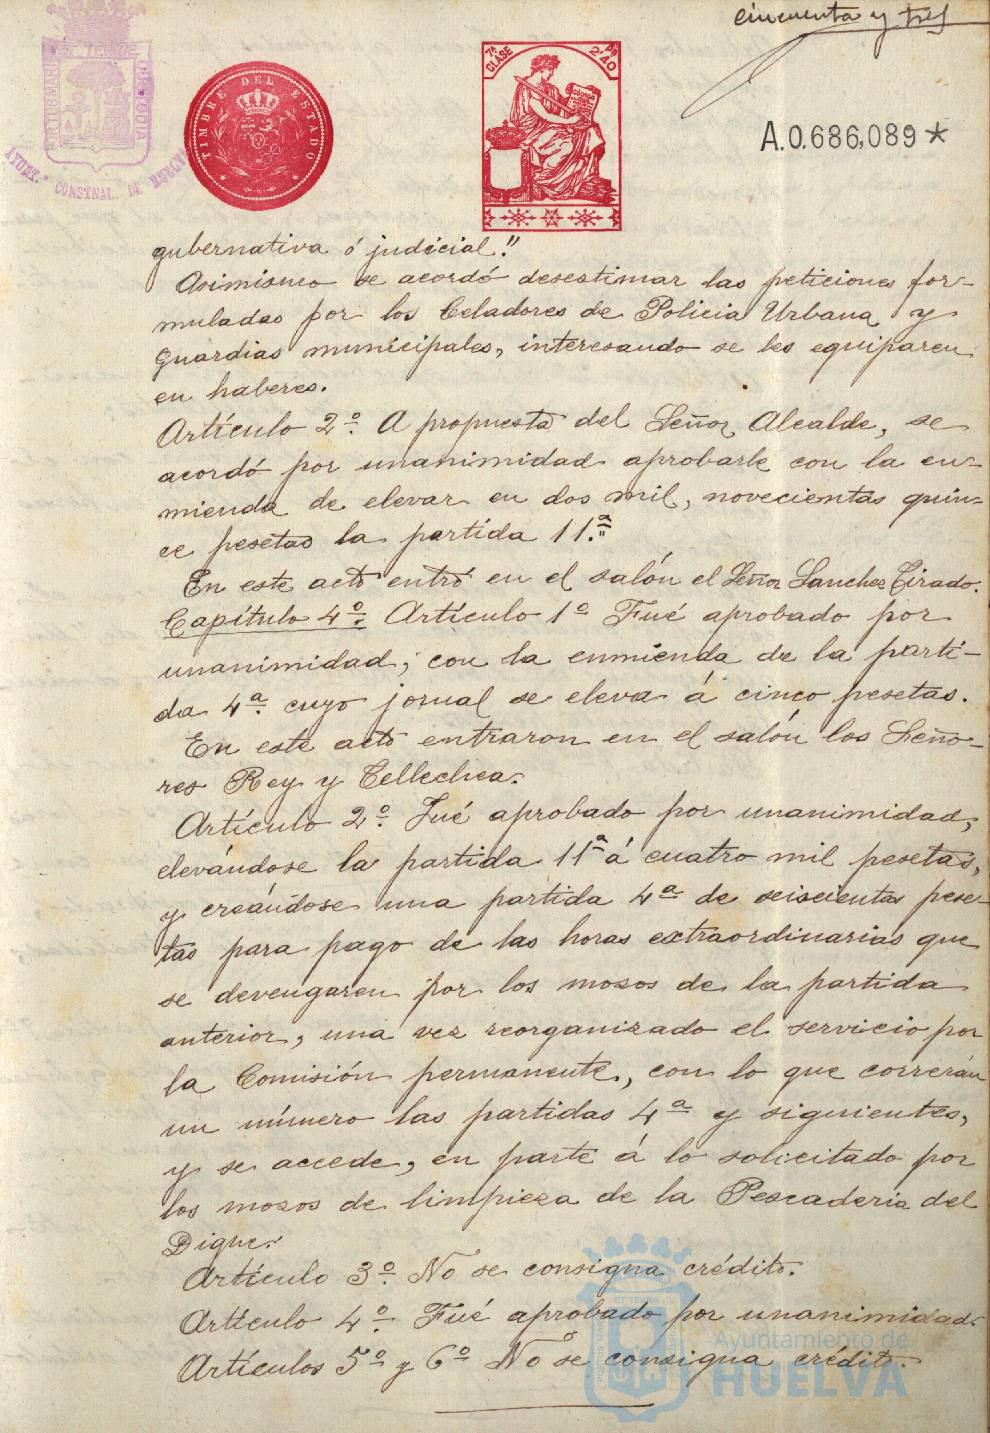 cincuenta y tres
TIMBRE DEL ESTADO
7ª CLASE
Pts 2'40
A.0.686,089*
AYUNT.º CONSTNAL. DE HUELVA
gubernativa ó judicial."
Asimismo se acordó desestimar las peticiones for-
muladas por los Celadores de Policia Urbana y
Guardias municipales, interesando se les equiparen
en haberes.
Artículo 2º. A propuesta del Señor Alcalde, se
acordó por unanimidad aprobarle con la en-
mienda de elevar en dos mil, novecientas quin-
ce pesetas la partida 11.ª
En este acto entró en el salón el Señor Sanchez Tirado.
Capítulo 4º. Artículo 1º Fué aprobado por
unanimidad, con la enmienda de la parti-
da 4ª. cuyo jornal se eleva á cinco pesetas.
En este acto entraron en el salón los Seño-
res Rey y Tellechea.
Artículo 2º. Fué aprobado por unanimidad,
elevándose la partida 11ª á cuatro mil pesetas,
y creándose una partida 4ª de seiscientas pese-
tas para pago de las horas extraordinarias que
se devengaren por los mozos de la partida
anterior, una vez reorganizado el servicio por
la Comisión permanente, con lo que correrán
un número las partidas 4ª y siguientes,
y se accede, en parte á lo solicitado por
los mozos de limpieza de la Pescaderia del
Dique.
Artículo 3º. No se consigna crédito.
Artículo 4º. Fué aprobado por unanimidad.
Artículos 5º y 6º No se consigna crédito.
Ayuntamiento de
HUELVA